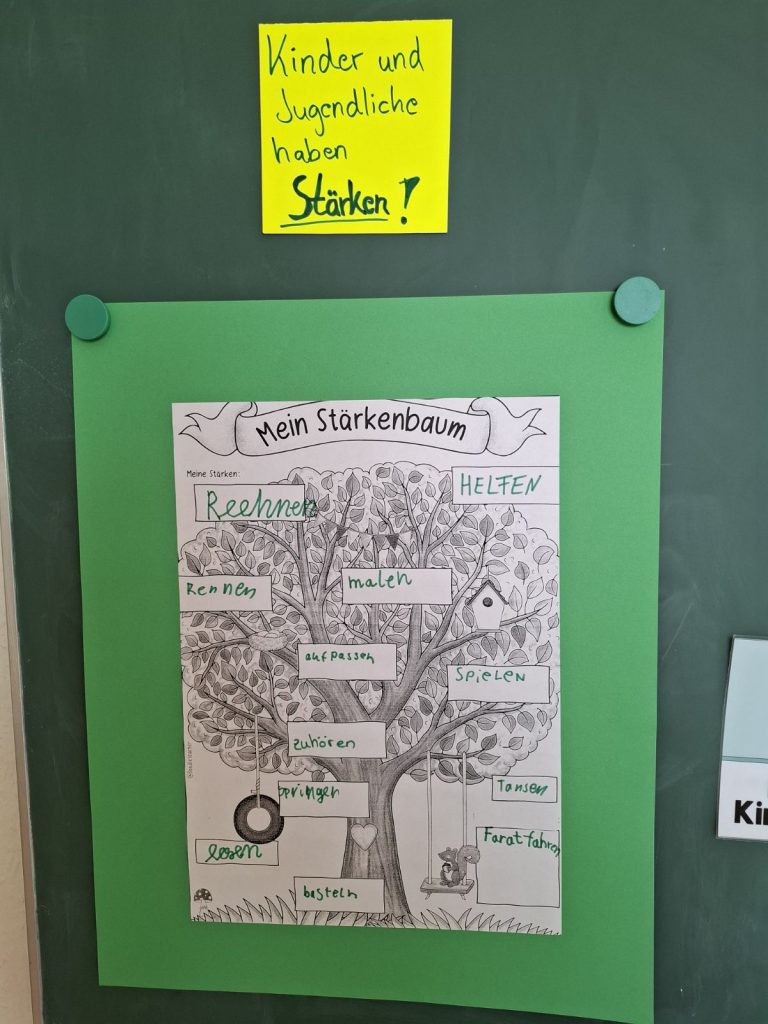 Kinder und
Jugendliche
haben
Stärken!
Mein Stärkenbaum
Meine Stärken:
Rechnen
HELFEN
Rennen
malen
aufpassen
SPiELEN
zuhören
springen
Tansen
Faratfahren
lesen
basteln
Kin